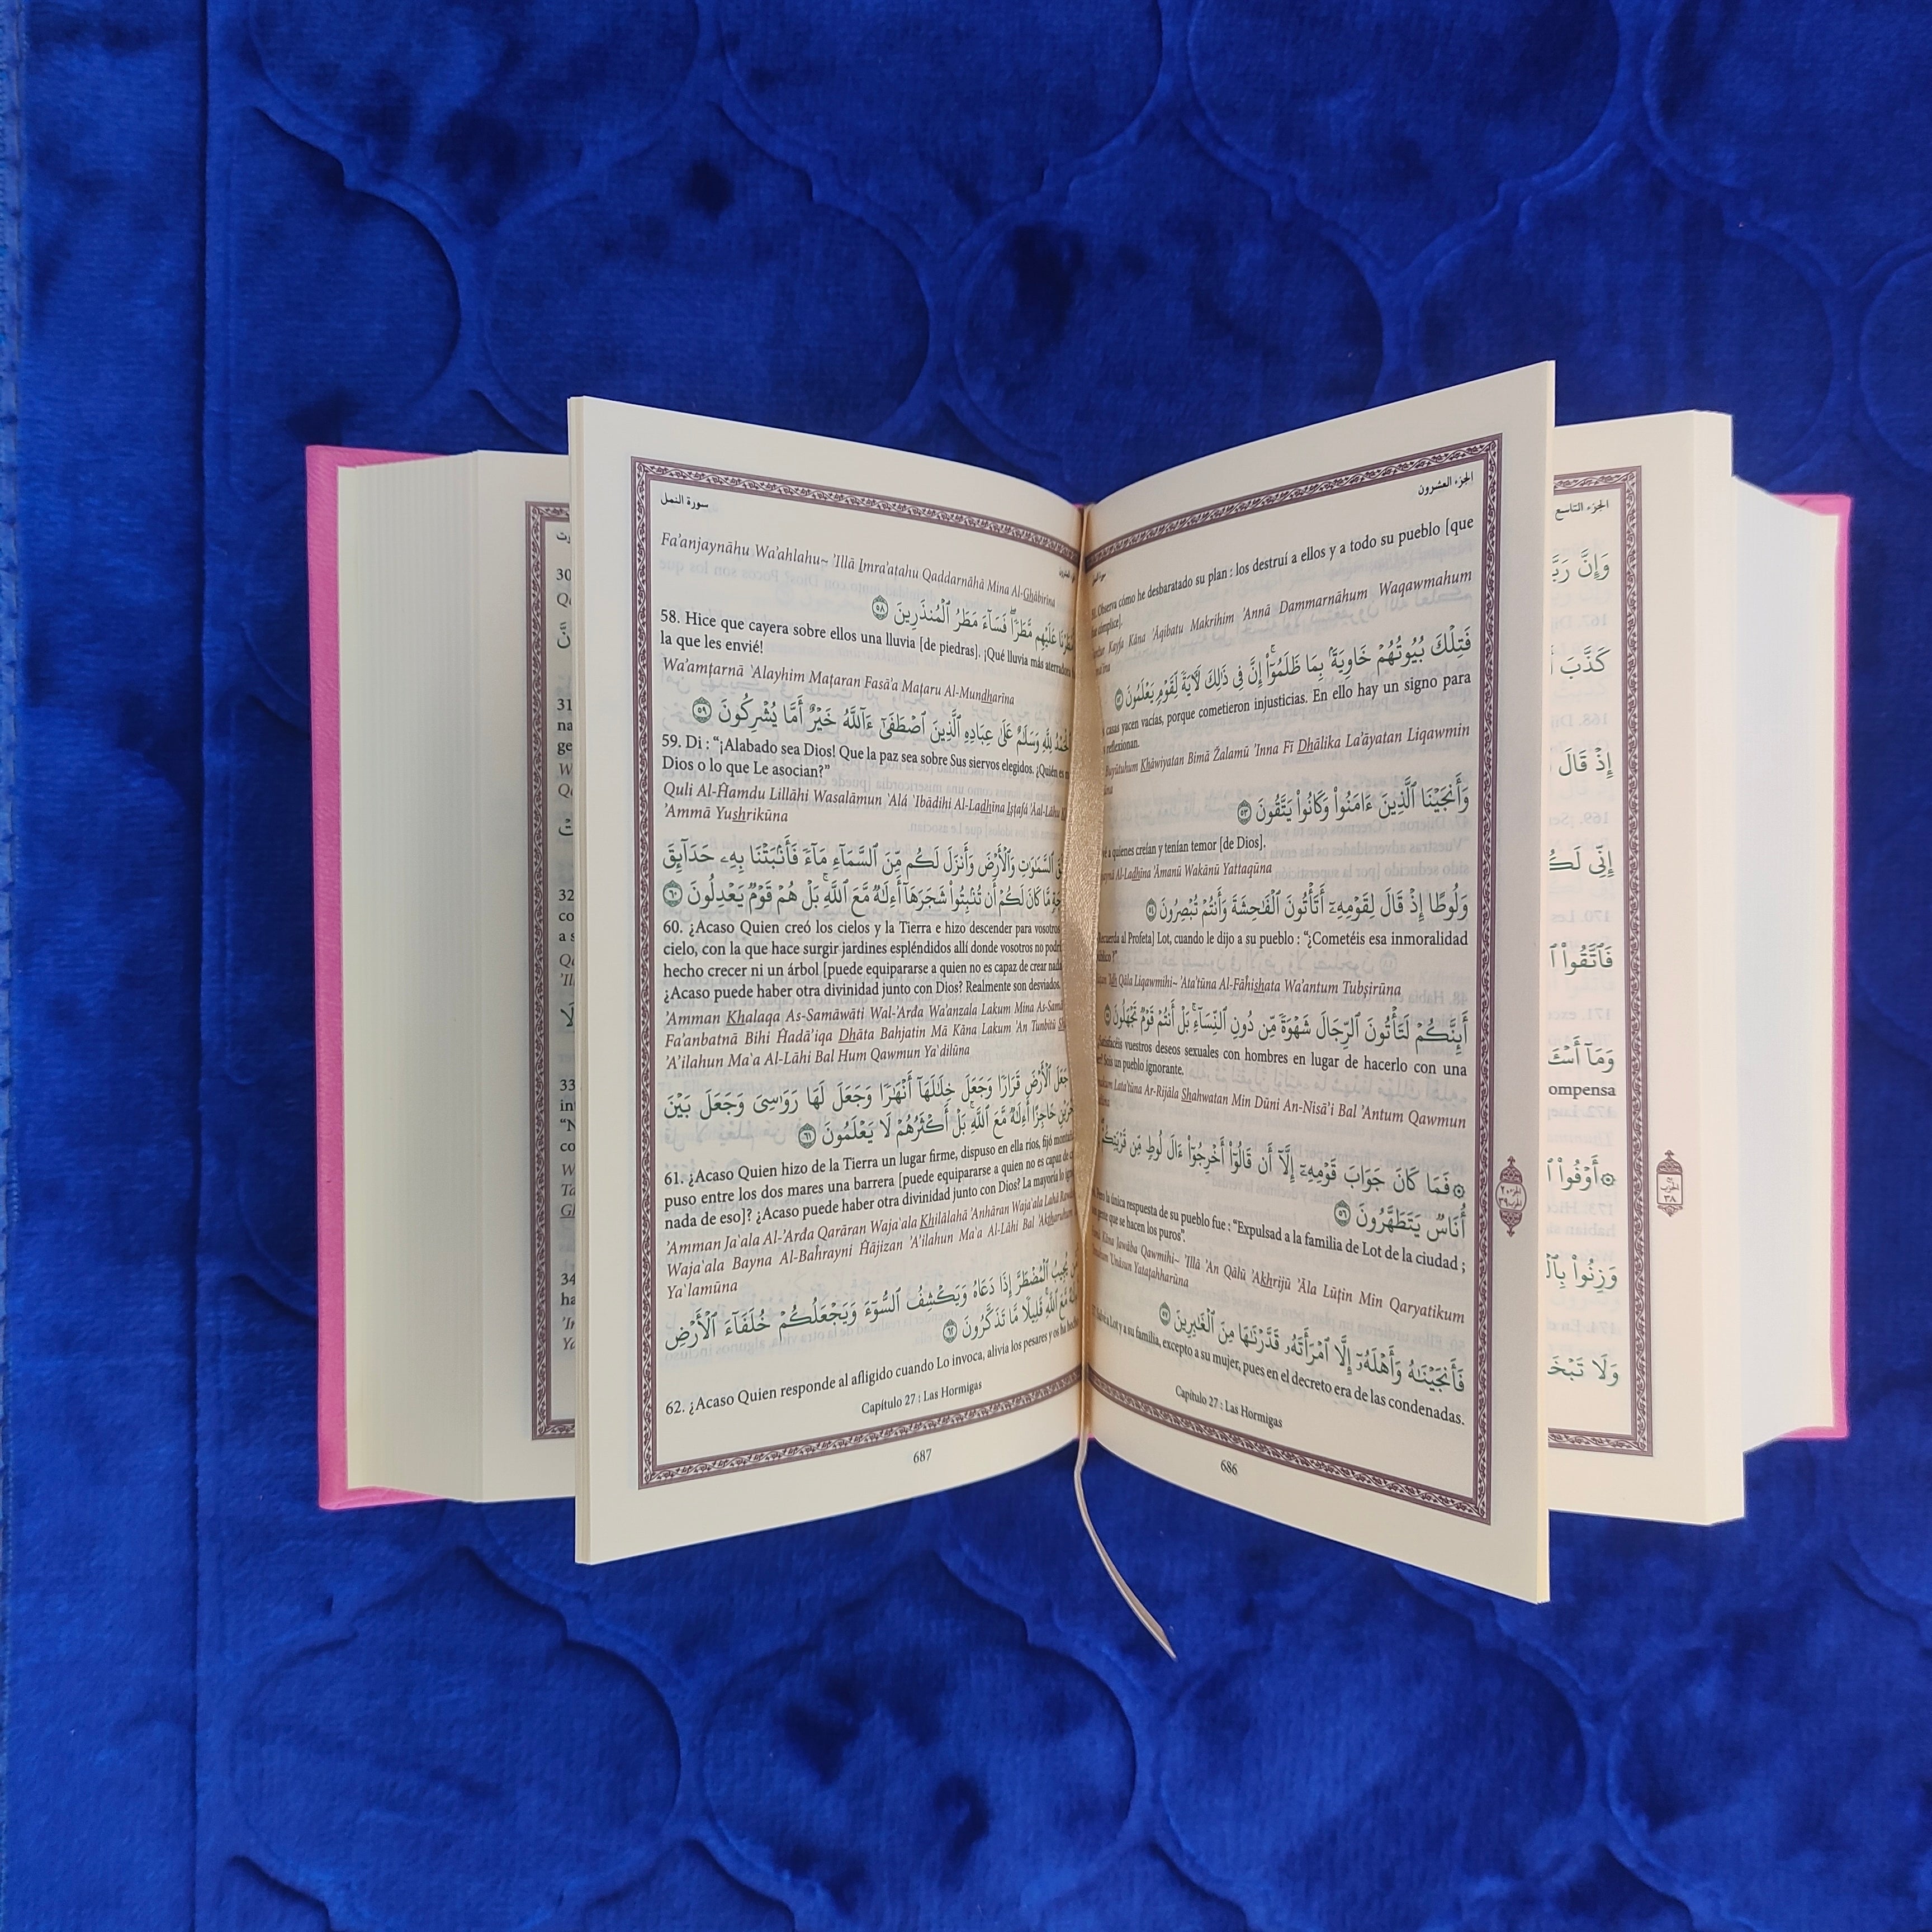 الجزء العشرون
Observa cómo he desbaratado su plan : los destruí a ellos y a todo su pueblo [que
Kayfa Kāna 'Āqibatu Makrihim 'Annā Dammarnāhum Waqawmahum
فَتِلْكَ بُيُوتُهُمْ خَاوِيَةًۢ بِمَا ظَلَمُوٓا۟ ۗ إِنَّ فِى ذَٰلِكَ لَـَٔايَةً لِّقَوْمٍ يَعْلَمُونَ ٥٢
casas yacen vacías, porque cometieron injusticias. En ello hay un signo para
reflexionan.
Buyūtuhum Khāwiyatan Bimā Žalamū 'Inna Fī Dhālika La'āyatan Liqawmin
وَأَنجَيْنَا ٱلَّذِينَ ءَامَنُوا۟ وَكَانُوا۟ يَتَّقُونَ ٥٣
a quienes creían y tenían temor [de Dios].
Al-Ladhīna 'Āmanū Wakānū Yattaqūna
وَلُوطًا إِذْ قَالَ لِقَوْمِهِۦٓ أَتَأْتُونَ ٱلْفَٰحِشَةَ وَأَنتُمْ تُبْصِرُونَ ٥٤
Recuerda al Profeta] Lot, cuando le dijo a su pueblo : “¿Cometéis esa inmoralidad
Qāla Liqawmihi~ 'Ata'tūna Al-Fāĥishata Wa'antum Tubşirūna
أَئِنَّكُمْ لَتَأْتُونَ ٱلرِّجَالَ شَهْوَةً مِّن دُونِ ٱلنِّسَآءِ ۚ بَلْ أَنتُمْ قَوْمٌ تَجْهَلُونَ
vuestros deseos sexuales con hombres en lugar de hacerlo con una
Sois un pueblo ignorante.
Lata'tūna Ar-Rijāla Shahwatan Min Dūni An-Nisā'i Bal 'Antum Qawmun
۞ فَمَا كَانَ جَوَابَ قَوْمِهِۦٓ إِلَّآ أَن قَالُوٓا۟ أَخْرِجُوٓا۟ ءَالَ لُوطٍ مِّن قَرْيَتِكُمْ
أُنَاسٌ يَتَطَهَّرُونَ ٥٦
la única respuesta de su pueblo fue : “Expulsad a la familia de Lot de la ciudad ;
gente que se hacen los puros”.
Kāna Jawāba Qawmihi~ 'Illā 'An Qālū 'Akhrijū 'Āla Lūţin Min Qaryatikum
Yataţahharūna
فَأَنجَيْنَٰهُ وَأَهْلَهُۥٓ إِلَّا ٱمْرَأَتَهُۥ قَدَّرْنَٰهَا مِنَ ٱلْغَٰبِرِينَ ٥٧
a Lot y a su familia, excepto a su mujer, pues en el decreto era de las condenadas.
Capítulo 27 : Las Hormigas
686
سورة النمل
Fa'anjaynāhu Wa'ahlahu~ 'Illā Imra'atahu Qaddarnāhā Mina Al-Ghābirīna
عَلَيْهِم مَّطَرًا ۖ فَسَآءَ مَطَرُ ٱلْمُنذَرِينَ ٥٨
58. Hice que cayera sobre ellos una lluvia [de piedras]. ¡Qué lluvia más
la que les envié!
Wa'amţarnā `Alayhim Maţaran Fasā'a Maţaru Al-Mundharīna
لِلَّهِ وَسَلَٰمٌ عَلَىٰ عِبَادِهِ ٱلَّذِينَ ٱصْطَفَىٰٓ ۗ ءَآللَّهُ خَيْرٌ أَمَّا يُشْرِكُونَ ٥٩
59. Di : “¡Alabado sea Dios! Que la paz sea sobre Sus siervos elegidos. ¿Quién es
Dios o lo que Le asocian?”
Quli Al-Ĥamdu Lillāhi Wasalāmun `Alá `Ibādihi Al-Ladhīna Işţafá 'Āal-Lāhu
'Ammā Yushrikūna
ٱلسَّمَٰوَٰتِ وَٱلْأَرْضَ وَأَنزَلَ لَكُم مِّنَ ٱلسَّمَآءِ مَآءً فَأَنۢبَتْنَا بِهِۦ حَدَآئِقَ
مَّا كَانَ لَكُمْ أَن تُنۢبِتُوا۟ شَجَرَهَآ ۗ أَءِلَٰهٌ مَّعَ ٱللَّهِ ۚ بَلْ هُمْ قَوْمٌ يَعْدِلُونَ ٦٠
60. ¿Acaso Quien creó los cielos y la Tierra e hizo descender para vosotros
cielo, con la que hace surgir jardines espléndidos allí donde vosotros no
hecho crecer ni un árbol [puede equipararse a quien no es capaz de crear nada
¿Acaso puede haber otra divinidad junto con Dios? Realmente son desviados.
'Amman Khalaqa As-Samāwāti Wal-'Arđa Wa'anzala Lakum Mina
Fa'anbatnā Bihi Ĥadā'iqa Dhāta Bahjatin Mā Kāna Lakum 'An Tunbitū
'A'ilahun Ma`a Al-Lāhi Bal Hum Qawmun Ya`dilūna
جَعَلَ ٱلْأَرْضَ قَرَارًا وَجَعَلَ خِلَٰلَهَآ أَنْهَٰرًا وَجَعَلَ لَهَا رَوَٰسِىَ وَجَعَلَ بَيْنَ
حَاجِزًا ۗ أَءِلَٰهٌ مَّعَ ٱللَّهِ ۚ بَلْ أَكْثَرُهُمْ لَا يَعْلَمُونَ ٦١
61. ¿Acaso Quien hizo de la Tierra un lugar firme, dispuso en ella ríos, fijó
puso entre los dos mares una barrera [puede equipararse a quien no es capaz de
nada de eso]? ¿Acaso puede haber otra divinidad junto con Dios? La mayoría lo
'Amman Ja`ala Al-'Arđa Qarāran Waja`ala Khilālahā 'Anhāran Waja`ala Lahā
Waja`ala Bayna Al-Baĥrayni Ĥājizan 'A'ilahun Ma`a Al-Lāhi Bal
Ya`lamūna
يُجِيبُ ٱلْمُضْطَرَّ إِذَا دَعَاهُ وَيَكْشِفُ ٱلسُّوٓءَ وَيَجْعَلُكُمْ خُلَفَآءَ ٱلْأَرْضِ
مَّعَ ٱللَّهِ ۚ قَلِيلًا مَّا تَذَكَّرُونَ ٦٢
62. ¿Acaso Quien responde al afligido cuando Lo invoca, alivia los pesares y os ha
Capítulo 27 : Las Hormigas
687
الجزء التاسع
وَإِنَّ
كَذَّبَ
إِذْ قَالَ
إِنِّى
فَٱتَّقُوا۟
وَمَآ
ompensa
۞ أَوْفُوا۟
وَزِنُوا۟
وَلَا
30
31
32
33
34